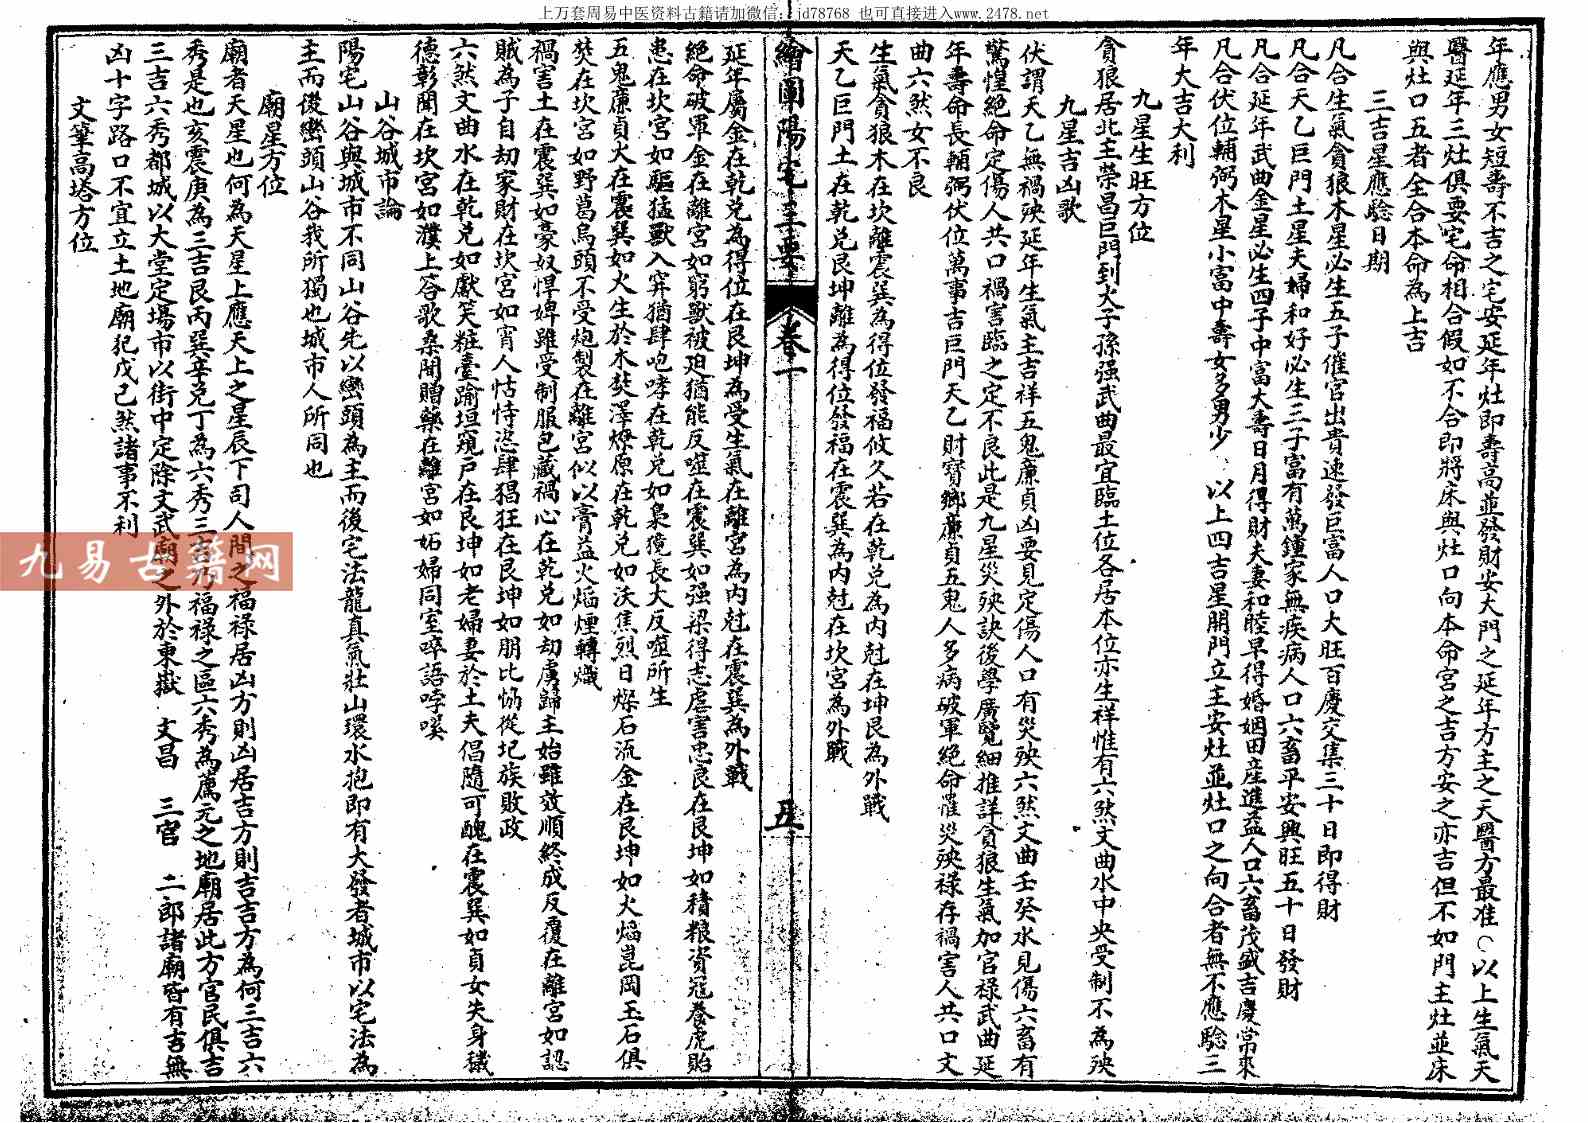 上万套周易中医资料古籍请加微信：jd78768 也可直接进入www.2478.net
年應男女短壽不吉之宅安延年灶即壽高並發財安大門之延年方主之天醫方最准○以上生氣天
醫延年三灶俱要宅命相合假如不合即將床與灶口向本命宮之吉方安之亦吉但不如門主灶並床
與灶口五者全合本命為上吉
三吉星應驗日期
凡合生氣貪狼木星必生五子催官出貴速發巨富人口大旺百慶交集三十日即得財
凡合天乙巨門土星夫婦和好必生三子富有萬鍾家無疾病人口六畜平安興旺五十日發財
凡合延年武曲金星必生四子中富大壽日月得財夫妻和睦早得婚姻田産進益人口六畜茂盛吉慶常來
凡合伏位輔弼木星小富中壽女多男少、以上四吉星開門立主安灶並灶口之向合者無不應驗三
年大吉大利
九星生旺方位
貪狼居北主榮昌巨門到火子孫强武曲最宜臨土位各居本位亦生祥惟有六煞文曲水中央受制不為殃
九星吉凶歌
伏謂天乙無禍殃延年生氣主吉祥五鬼廉貞凶要見定傷人口有災殃六煞文曲壬癸水見傷六畜有
驚惶絕命定傷人共口禍害臨之定不良此是九星災殃訣後學廣覽細推詳貪狼生氣加官祿武曲延
年壽命長輔弼伏位萬事吉巨門天乙財寶鄉廉貞五鬼人多病破軍絕命罹災殃祿存禍害人共口文
曲六煞女不良
生氣貪狼木在坎離震巽為得位發福攸久若在乾兌為內尅在坤艮為外戰
天乙巨門土在乾兌艮坤離為得位發福在震巽為內尅在坎宮為外戰
繪圖陽宅三要 卷一 五
延年屬金在乾兌為得位在艮坤為受生氣在離宮為內尅在震巽為外戰
絕命破軍金在離宮如窮獸被廹猶能反噬在震巽如强梁得志虐害忠良在艮坤如積粮資寇養虎貽
患在坎宮如驅猛獸入穽猶肆咆哮在乾兌如梟獍長大反噬所生
五鬼廉貞火在震巽如火生於木焚澤燎原在乾兌如沃焦烈日爍石流金在艮坤如火焰崑岡玉石俱
焚在坎宮如野葛烏頭不受炮製在離宮似以膏益火焰煙轉熾
禍害土在震巽如豪奴悍婢雖受制服包藏禍心在乾兌如刼虜歸主始雖效順終成反覆在離宮如認
賊為子自刼家財在坎宮如宵人怙恃恣肆猖狂在艮坤如朋比恊從圮族敗政
六煞文曲水在乾兌如獻笑粧臺踰垣窺戸在艮坤如老婦妻於土夫倡隨可醜在震巽如貞女失身穢
德彰聞在坎宮如濮上答歌桑間贈藥在離宮如妬婦同室啐語哱嗘
山谷城市論
陽宅山谷與城市不同山谷先以巒頭為主而後宅法龍真氣壯山環水抱即有大發者城市以宅法為
主而後巒頭山谷我所獨也城市人所同也
廟星方位
廟者天星也何為天星上應天上之星辰下司人間之福祿居凶方則凶居吉方則吉吉方為何三吉六
秀是也亥震庚為三吉艮丙巽辛兌丁為六秀三吉乃福祿之區六秀為薦元之地廟居此方官民俱吉
三吉六秀都城以大堂定場市以街中定除文武廟之外於東嶽 文昌 三官 二郎諸廟皆有吉無
凶十字路口不宜立土地廟犯戊己煞諸事不利
文筆高塔方位
九易古籍网